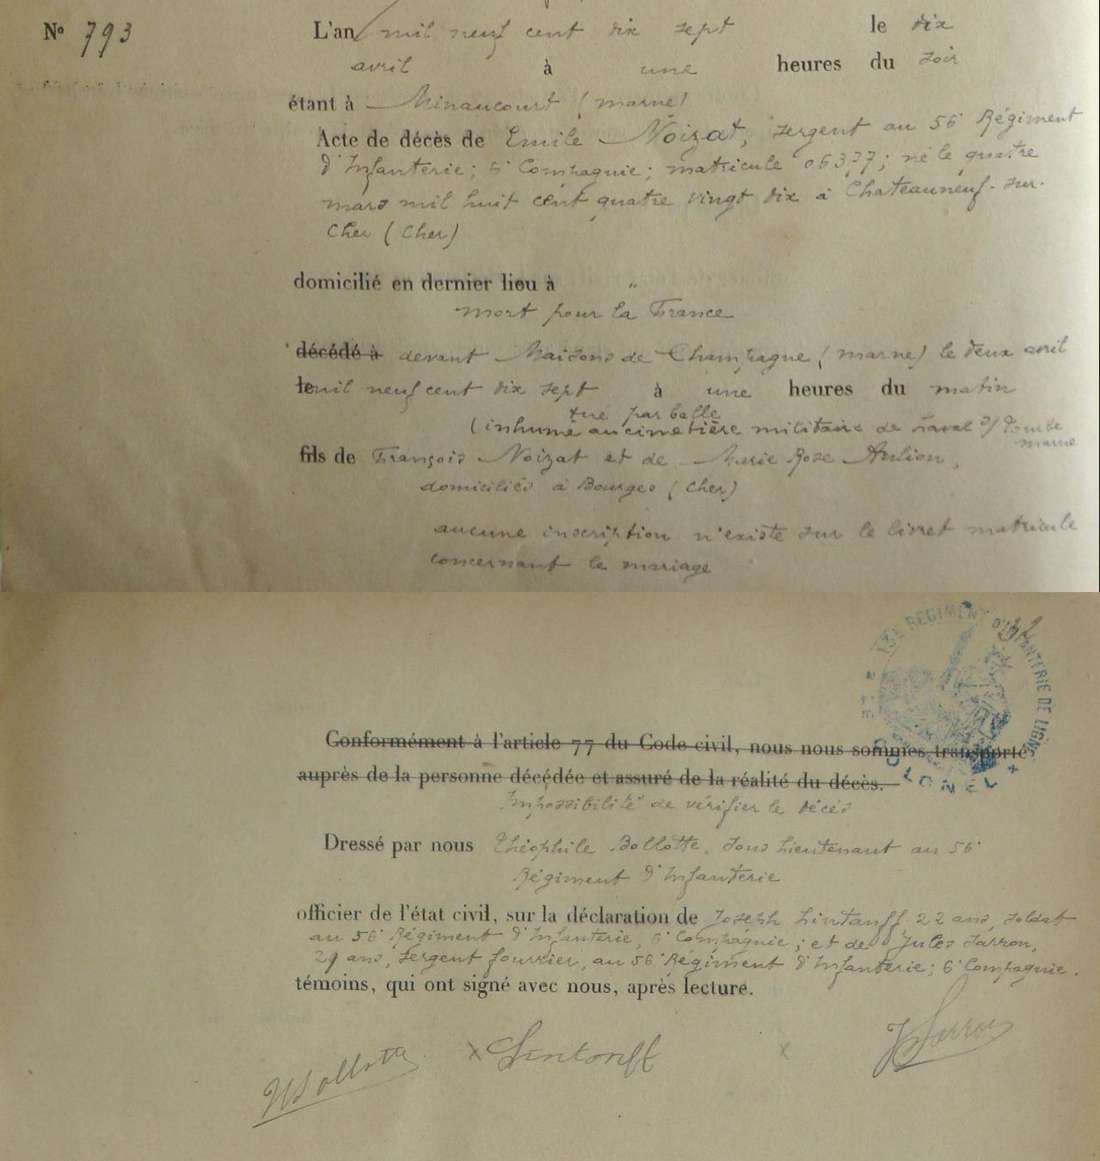 N° 793
L'an mil neuf cent dix sept le dix
avril à une heures du soir
étant à Minaucourt (marne)
Acte de décès de Emile Noizat, sergent au 56e Régiment
d'Infanterie; 6e Compagnie; matricule 06377; né le quatre
mars mil huit cent quatre vingt dix à Chateauneuf-sur-
Cher (Cher)
domicilié en dernier lieu à "
mort pour la France
décédé à devant Maisons de Champagne (marne) le deux avril
le mil neuf cent dix sept à une heures du matin
tué par balle
(inhumé au cimetière militaire de Laval s/ Tourbe
marne
fils de François Noizat et de Marie Rose Aulion,
domiciliés à Bourges (Cher)
aucune inscription n'existe sur le livret matricule
concernant le mariage
RÉGIMENT D'INFANTERIE DE LIGNE
COLONEL
Conformément à l'article 77 du Code civil, nous nous sommes transporté
auprès de la personne décédée et assuré de la réalité du décès.
Impossibilité de vérifier le décès
Dressé par nous Théophile Bollotte, sous Lieutenant au 56e
Régiment d'Infanterie
officier de l'état civil, sur la déclaration de Joseph Lintanff 22 ans, soldat
au 56e Régiment d'Infanterie, 6e Compagnie; et de Jules Sarron,
29 ans, sergent fourrier, au 56e Régiment d'Infanterie; 6e Compagnie.
témoins, qui ont signé avec nous, après lecture.
Bollotte x Lintanff x J Sarron